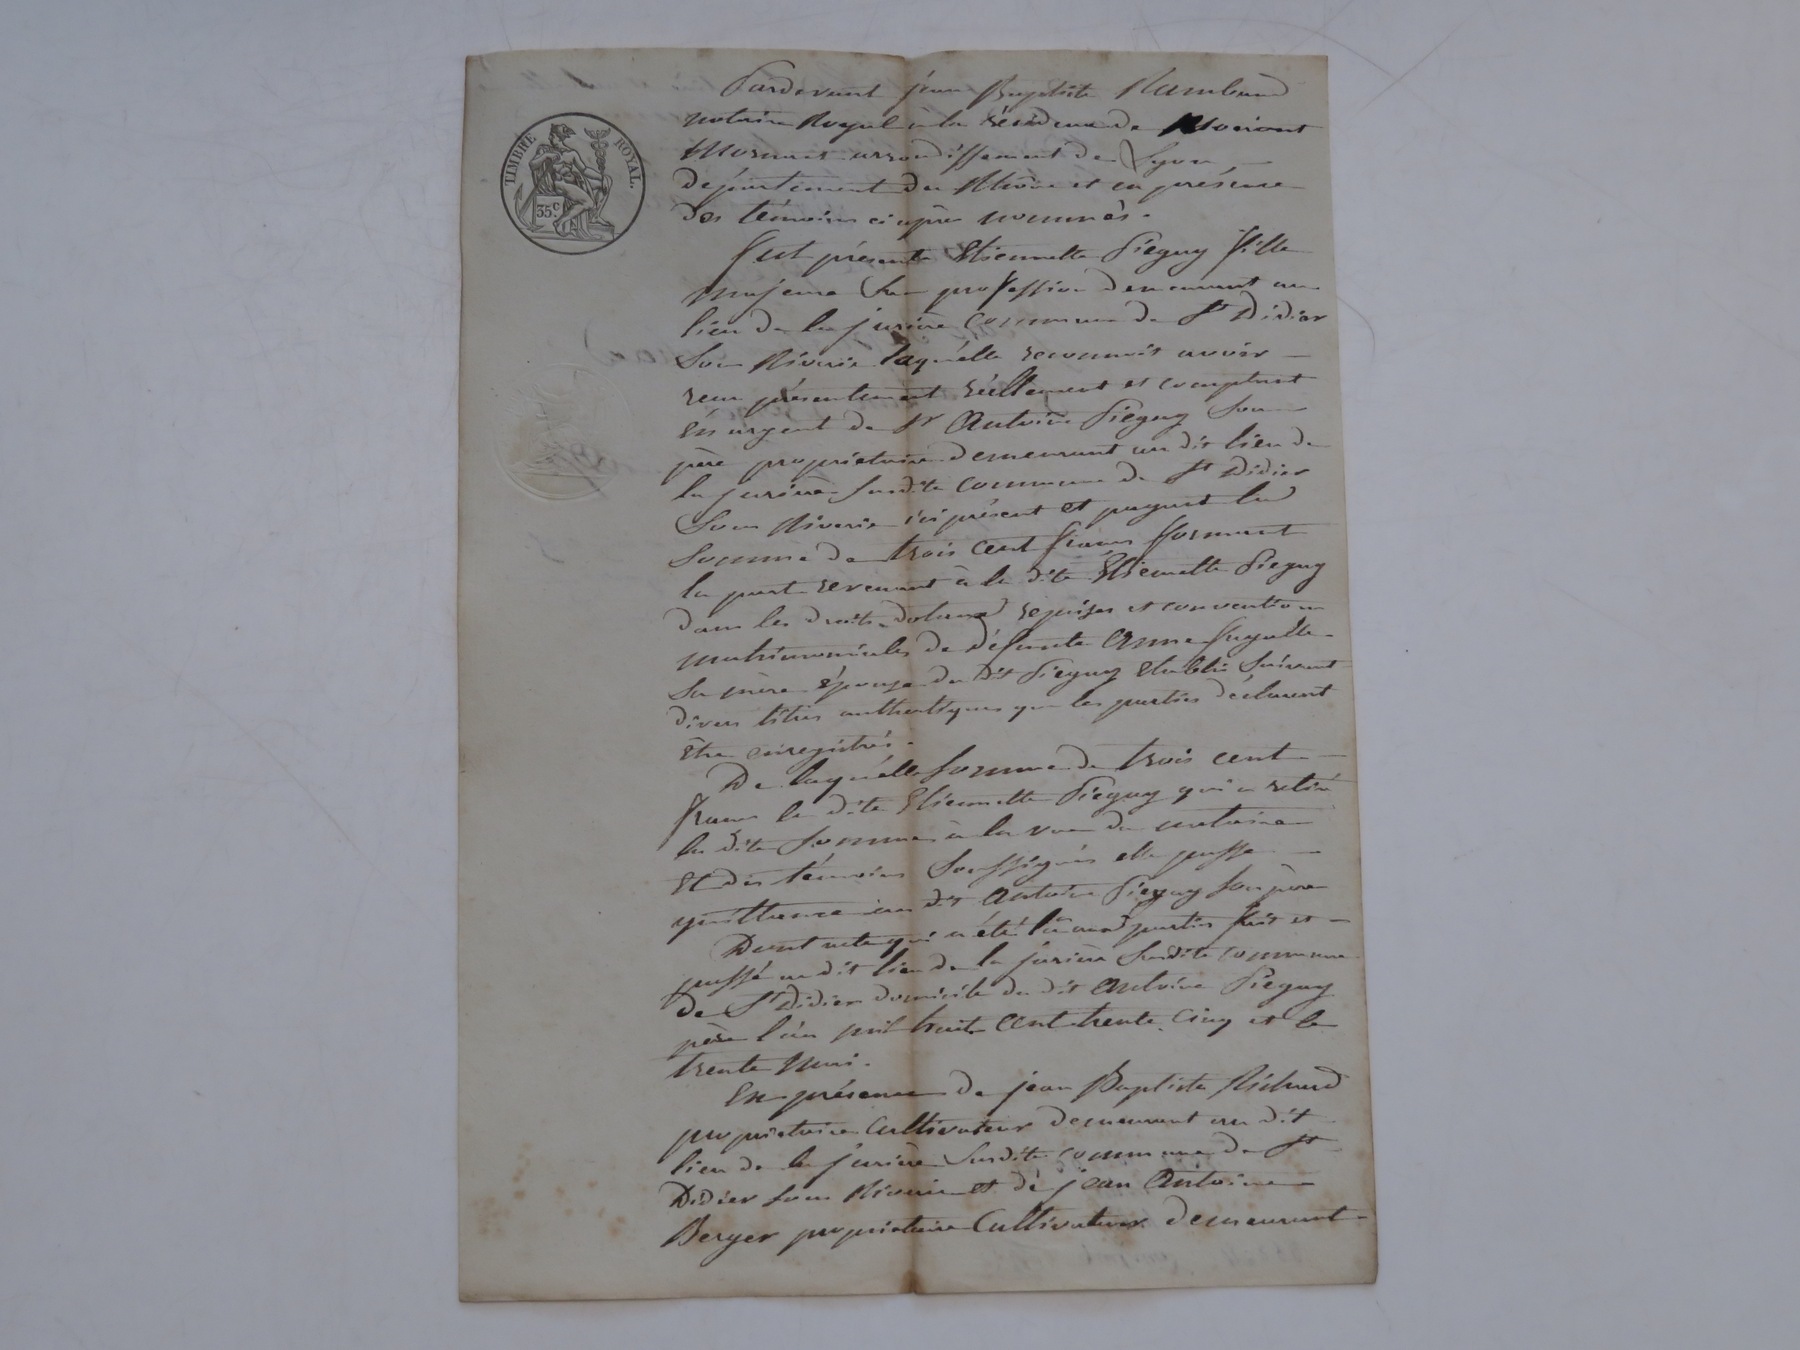 TIMBRE ROYAL.
35c.
Pardevant jean Baptiste Rambaud
notaire Royal à la résidence de
Mornant arrondissement de Lyon
département du Rhône et en présence
des témoins ci après nommés.
fut présente Etiennette Piegay fille
majeure San profession demeurant au
lieu de la jurière Commune de St Didier
Sous Riverie laquelle reconnoit avoir
recu présentement réellement et comptant
én argent de Sr Antoine Piegay Son
père propriétaire demeurant au dit lieu de
la jurière Susdite Commune de St Didier
Sous Riverie ici présent et payant la
Somme de trois cent francs formant
la part revenant à la dite Etiennette Piegay
dans les droits dotaux reprises et convention
matrimoniales de défunte Anne
Sa mère épouse du dit Piegay établis Suivant
divers titres authentiques que les parties déclarent
être enregistrés.
De laquelle Somme de trois cent
francs la dite Etiennette Piegay qui a retiré
la dite Somme à la vue du notaire
Et des témoins Soussignés elle passe
quittance au dit Antoine Piegay Son père
Dont acte qui a été lu aux parties fait et
passé au dit lieu de la jurière Susdite commune
de St Didier domicile du dit Antoine Piegay
père l'an mil huit cent trente cinq et le
trente Mai.
En présence de jean Baptiste Richard
propriétaire Cultivateur demeurant au dit
lieu de la jurière Susdite commune de St
Didier Sous Riverie et de jean Antoine
Berger propriétaire Cultivateur demeurant